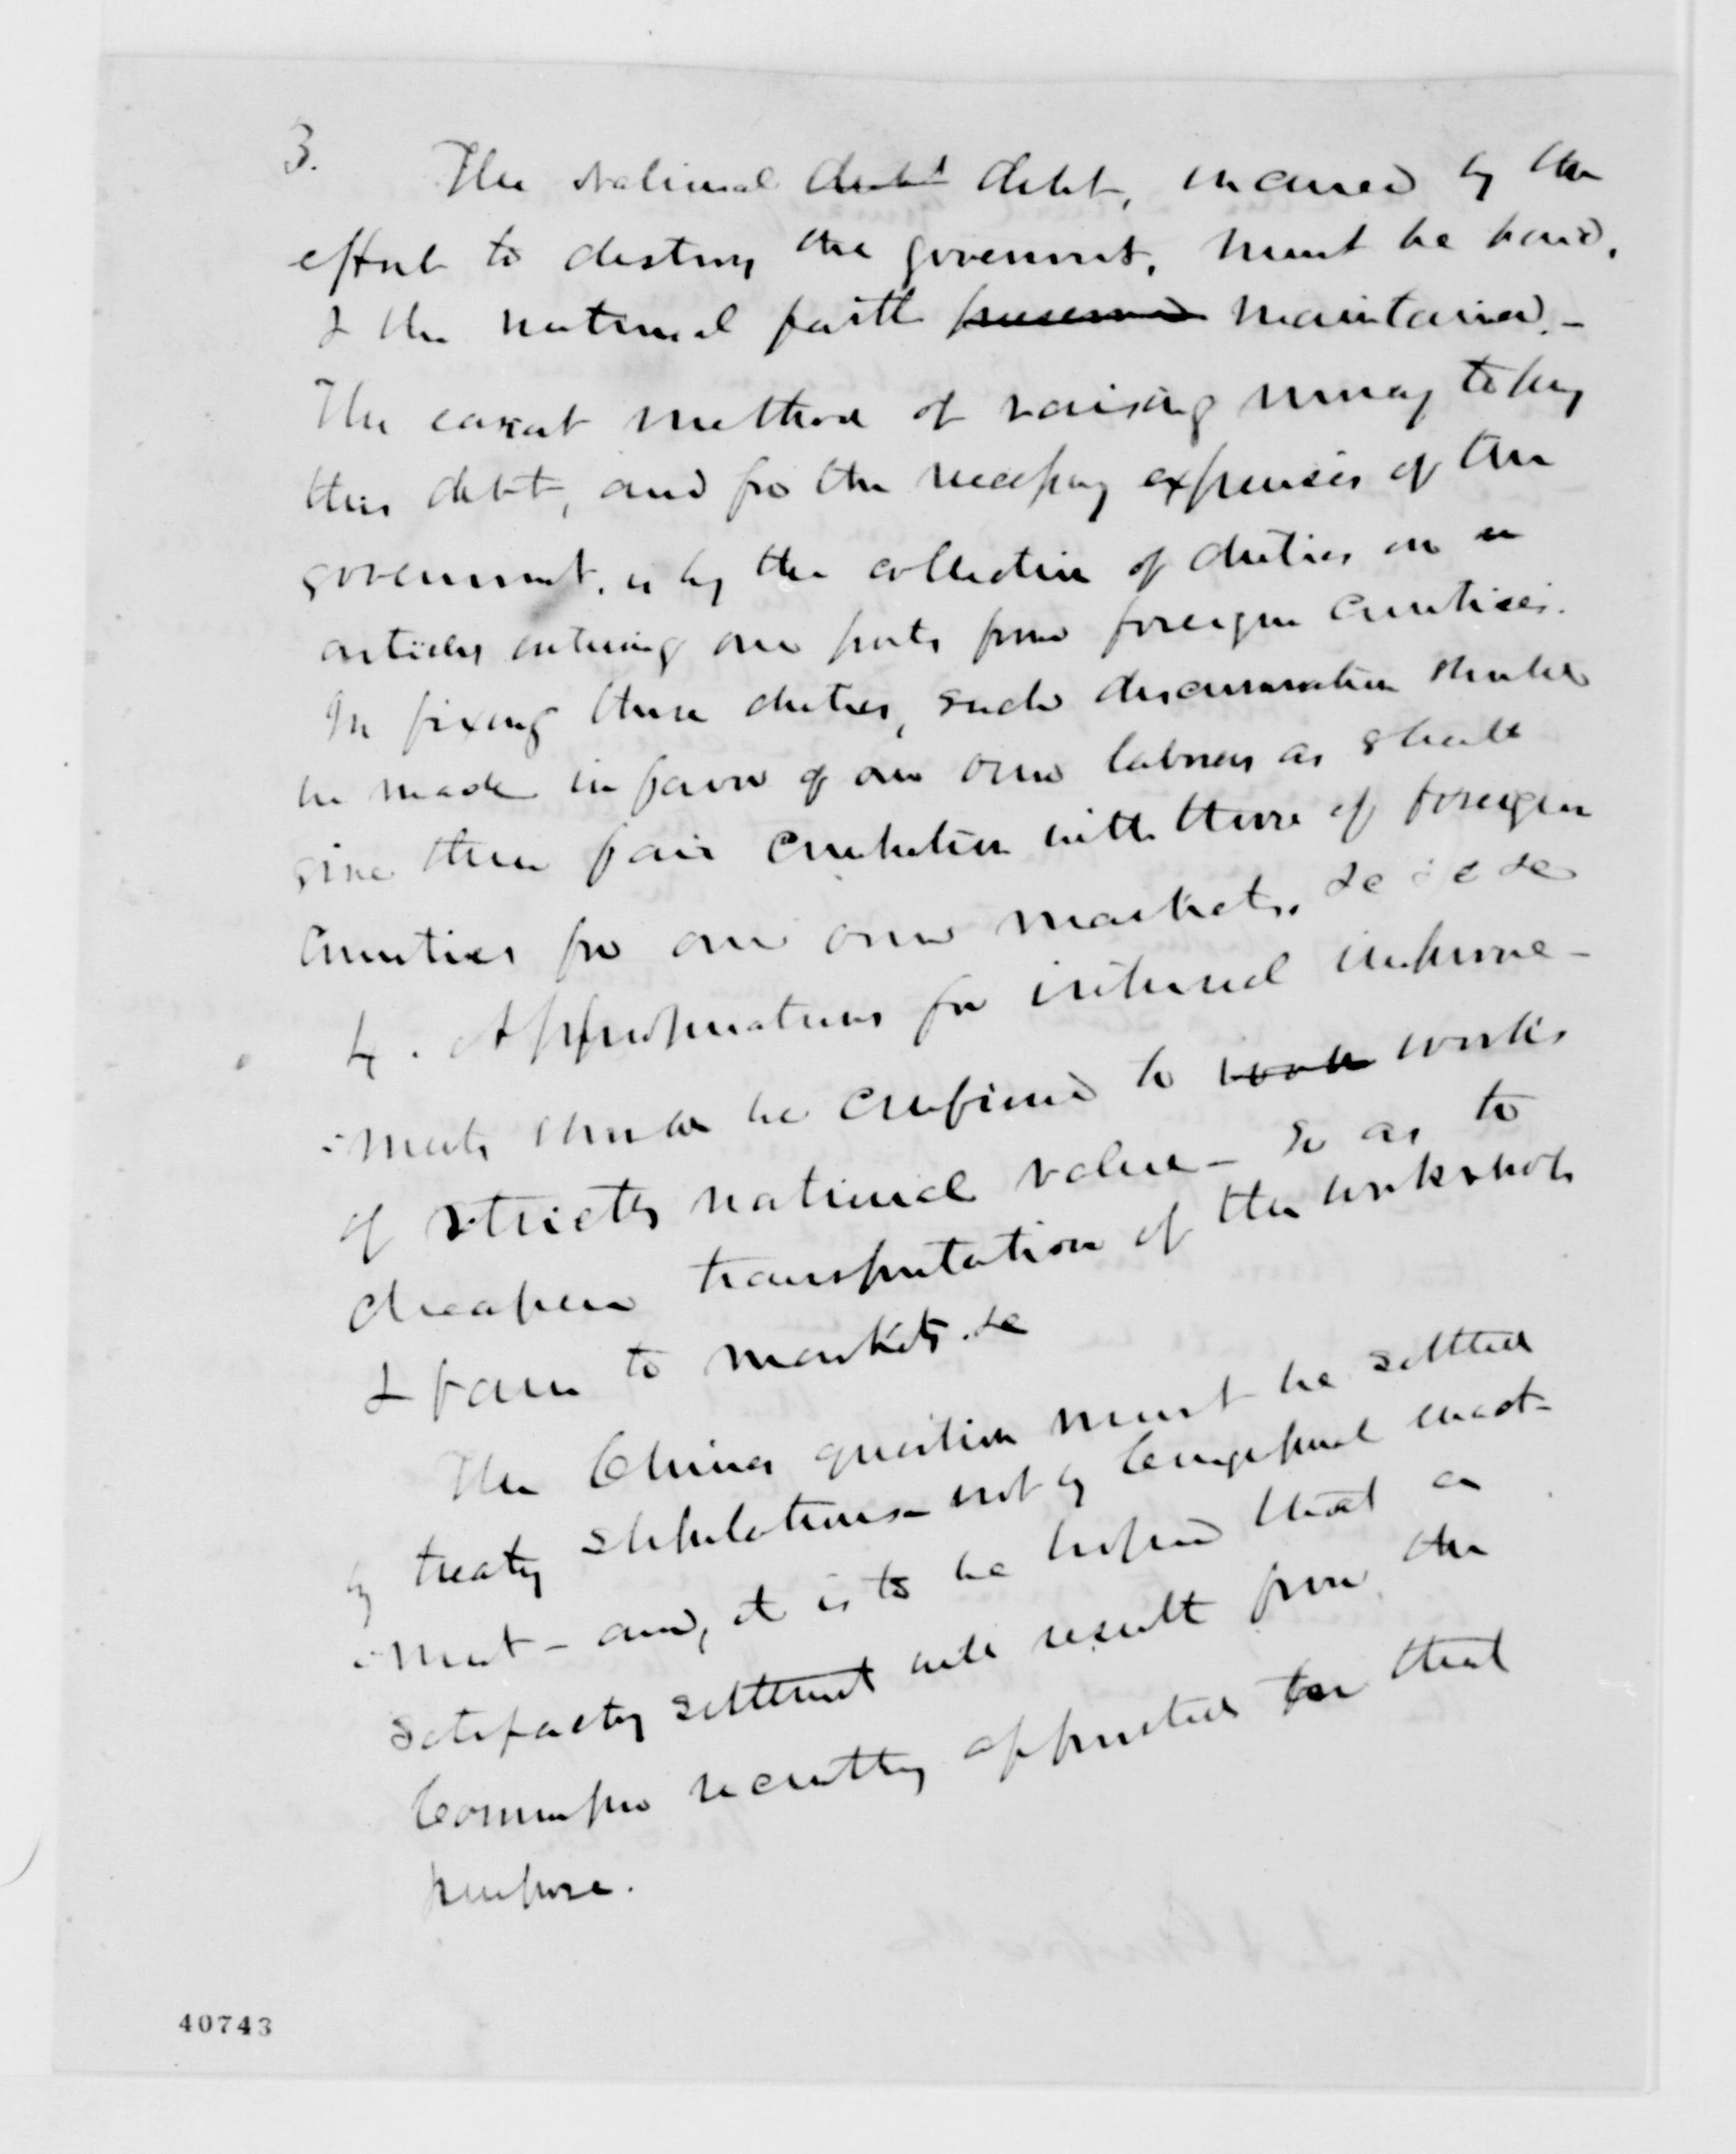 3. The National debt debt, incurred by the
effort to destroy the government, must be paid,
& the national faith preserved maintained. –
The easiest method of raising money to pay
this debt, and for the necessary expenses of the
government, is by the collection of duties on
articles entering our ports from foreign countries.
In fixing these duties, such discrimination should
be made in favor of our own laborers as shall
give them fair competition with those of foreign
countries for our own markets. &c &c &c
4. Appropriations for internal improve-
-ments should be confined to work works
of strictly national value – so as to
cheapen transportation of the workshops
& farm to markets &c
The China question must be settled
by treaty stipulations – not by Congressional enact-
-ment – and, it is to be hoped that a
satisfactory settlement will result from the
Commission recently appointed for that
purpose.
40743